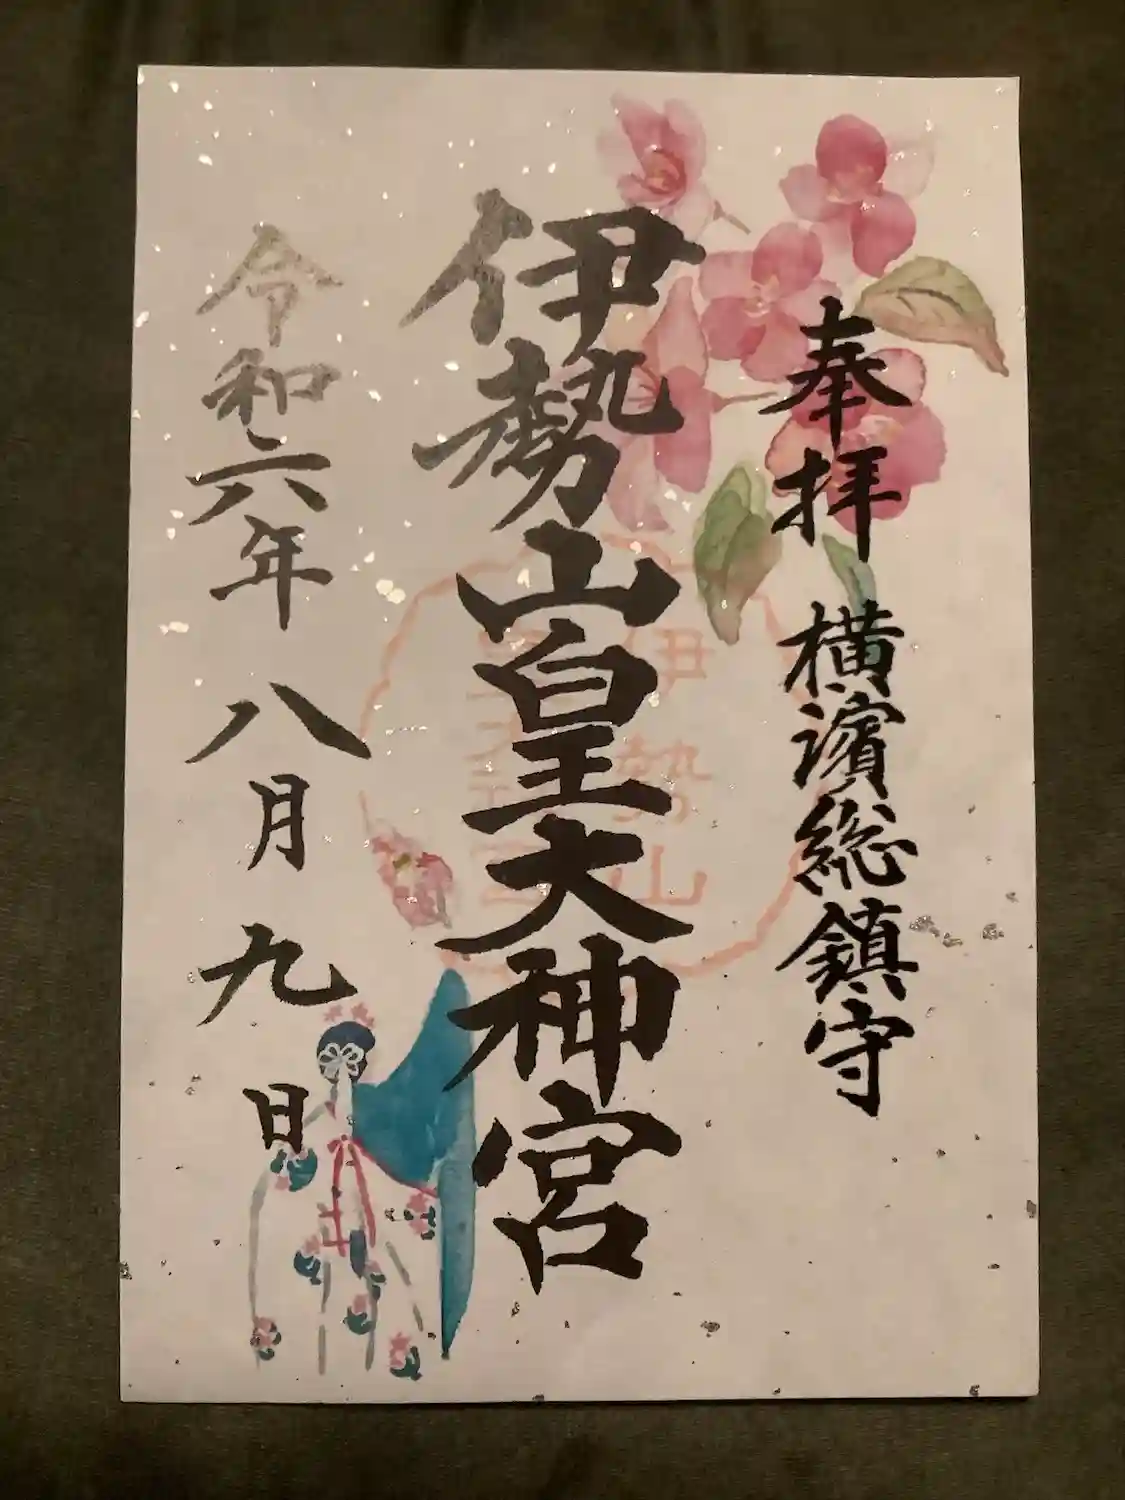 奉拝 横濱総鎮守
伊勢山皇大神宮
令和六年 八月 九日
伊勢山
皇大神宮